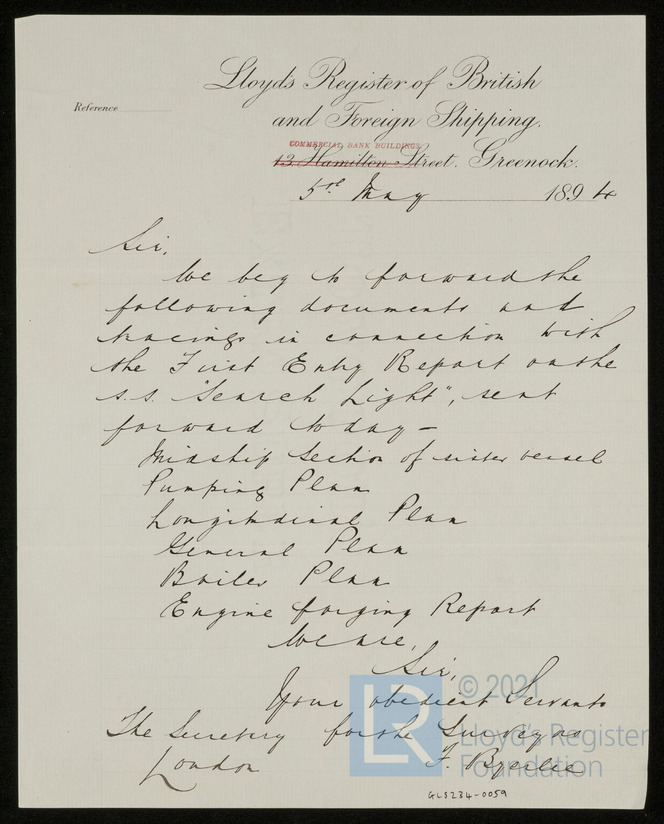 Lloyds Register of British
and Foreign Shipping.
Reference
COMMERCIAL BANK BUILDINGS,
13, Hamilton Street. Greenock.
5th May 1894
Sir,
We beg to forward the
following documents and
tracings in connection with
the First Entry Report on the
s.s. "Search Light", sent
forward today -
Midship Section of sister vessel
Pumping Plan
Longitudinal Plan
General Plan
Boiler Plan
Engine forging Report
We are,
Sir,
Your obedient Servants
The Secretary for the Surveyors
London F. Byerlie
GLS234-0059
LR
© 2021
Lloyd's Register
Foundation